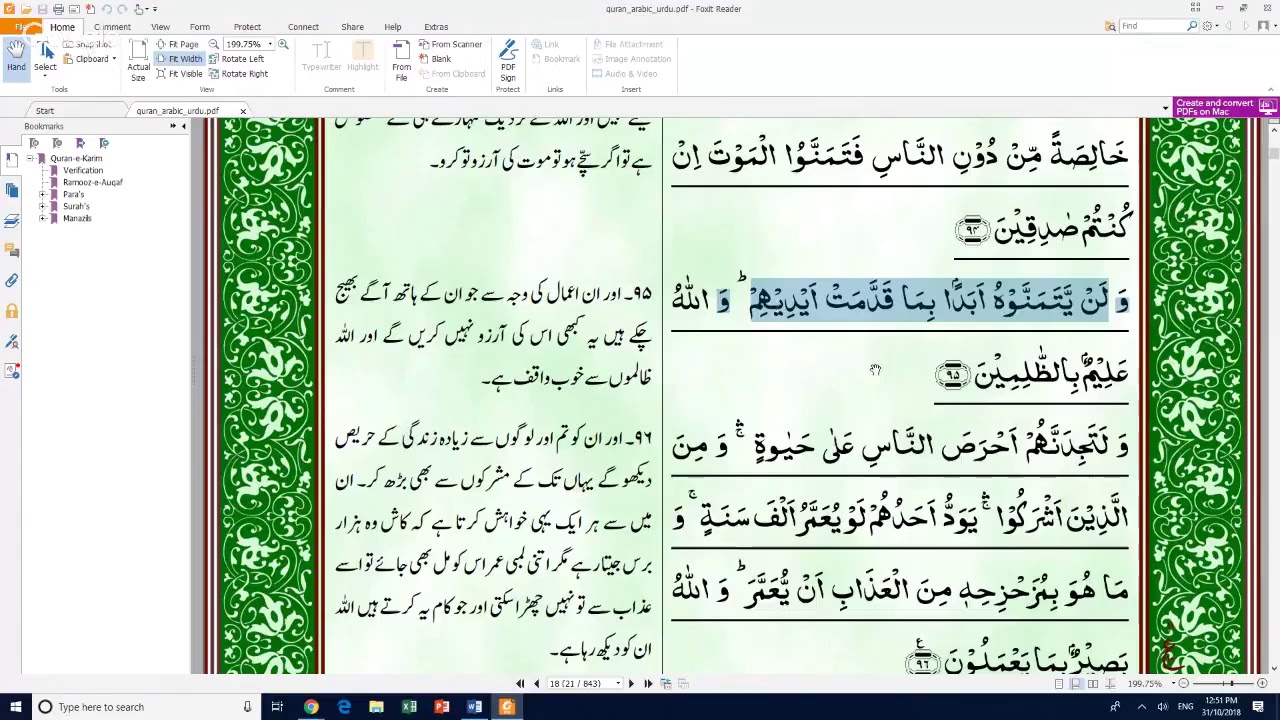 quran_arabic_urdu.pdf - Foxit Reader
File
Home
Comment
View
Form
Protect
Share
Connect
Help
Find
Hand
Select
SnapShot
Clipboard
Tools
Actual Size
Fit Page
Fit Width
Fit Visible
199.75%
Rotate Left
Rotate Right
View
Typewriter
Highlight
Comment
From File
From Scanner
Blank
From Clipboard
Create
PDF Sign
Protect
Link
Bookmark
Links
File Attachment
Image Annotation
Audio & Video
Insert
Start
quran_arabic_urdu.pdf
Create and convert
PDFs on Mac
Bookmarks
Quran-e-Karim
Verification
Ramooz-e-Auqaf
Para's
Surah's
Manazils
خَالِصَةً مِّنْ دُوْنِ النَّاسِ فَتَمَنَّوُا الْمَوْتَ اِنْ
كُنْتُمْ صٰدِقِيْنَ ﴿۹۴﴾
وَ لَنْ يَّتَمَنَّوْهُ اَبَدًۢا بِمَا قَدَّمَتْ اَيْدِيْهِمْ ؕ وَ اللّٰهُ
عَلِيْمٌۢ بِالظّٰلِمِيْنَ ﴿۹۵﴾
وَ لَتَجِدَنَّهُمْ اَحْرَصَ النَّاسِ عَلٰى حَيٰوةٍ ۚۛ وَ مِنَ
الَّذِيْنَ اَشْرَكُوْا ۚۛ يَوَدُّ اَحَدُهُمْ لَوْ يُعَمَّرُ اَلْفَ سَنَةٍ ۚ وَ
مَا هُوَ بِمُزَحْزِحِهٖ مِنَ الْعَذَابِ اَنْ يُّعَمَّرَ ؕ وَ اللّٰهُ
بَصِيْرٌۢ بِمَا يَعْمَلُوْنَ ﴿۹۶﴾
ہے تو اگر سچّے ہو تو موت کی آرزو تو کرو۔
۹۵۔ اور ان اعمال کی وجہ سے جو ان کے ہاتھ آگے بھیج
چکے ہیں یہ کبھی اس کی آرزو نہیں کریں گے اور اللہ
ظالموں سے خوب واقف ہے۔
۹۶۔ اور ان کو تم اور لوگوں سے زیادہ زندگی کے حریص
دیکھو گے یہاں تک کے مشرکوں سے بھی بڑھ کر۔ ان
میں سے ہر ایک یہی خواہش کرتا ہے کہ کاش وہ ہزار
برس جیتا رہے مگر اتنی لمبی عمر اس کو مل بھی جائے تو اسے
عذاب سے تو نہیں چھڑا سکتی اور جو کام یہ کرتے ہیں اللہ
ان کو دیکھ رہا ہے۔
18 (21 / 843)
199.75%
Type here to search
ENG
12:51 PM
31/10/2018